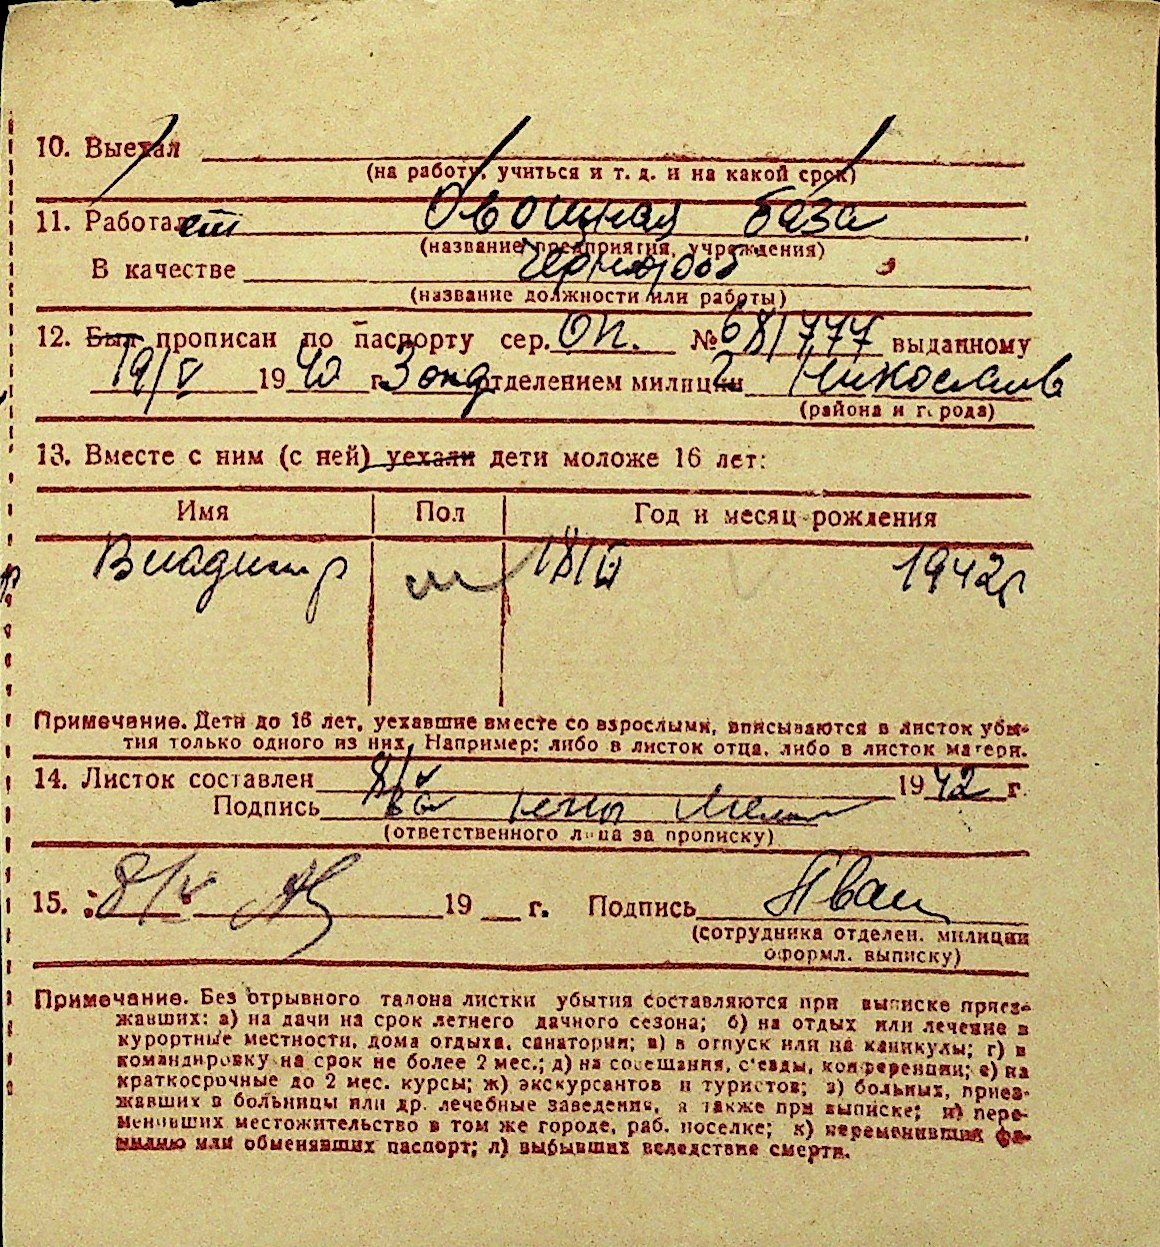 10. Выехал
(на работу, учиться и т. д. и на какой срок)
11. Работает Овощная база
(название предприятия, учреждения)
В качестве Чернороб
(название должности или работы)
12. Был прописан по паспорту сер. ОП. № 681777 выданному
19/V 1940 г. 3 отделением милиции г Николаев
(района и города)
13. Вместе с ним (с ней) уехали дети моложе 16 лет:
Имя Пол Год и месяц рождения
Владимир м 18/II 1942г
Примечание. Дети до 16 лет, уехавшие вместе со взрослыми, вписываются в листок убы-
тия только одного из них. Например: либо в листок отца, либо в листок матери.
14. Листок составлен 8/V 1942 г.
Подпись
(ответственного лица за прописку)
15. 8/V 19 г. Подпись
(сотрудника отделен. милиции
оформл. выписку)
Примечание. Без отрывного талона листки убытия составляются при выписке приез-
жавших: а) на дачи на срок летнего дачного сезона; б) на отдых или лечение в
курортные местности, дома отдыха, санатории; в) в отпуск или на каникулы; г) в
командировку на срок не более 2 мес.; д) на совещания, с'езды, конференции; е) на
краткосрочные до 2 мес. курсы; ж) экскурсантов и туристов; з) больных, приез-
жавших в больницы или др. лечебные заведения, а также при выписке; и) пере-
менивших местожительство в том же городе, раб. поселке; к) переменивших фа-
милию или обменявших паспорт; л) выбывших вследствие смерти.